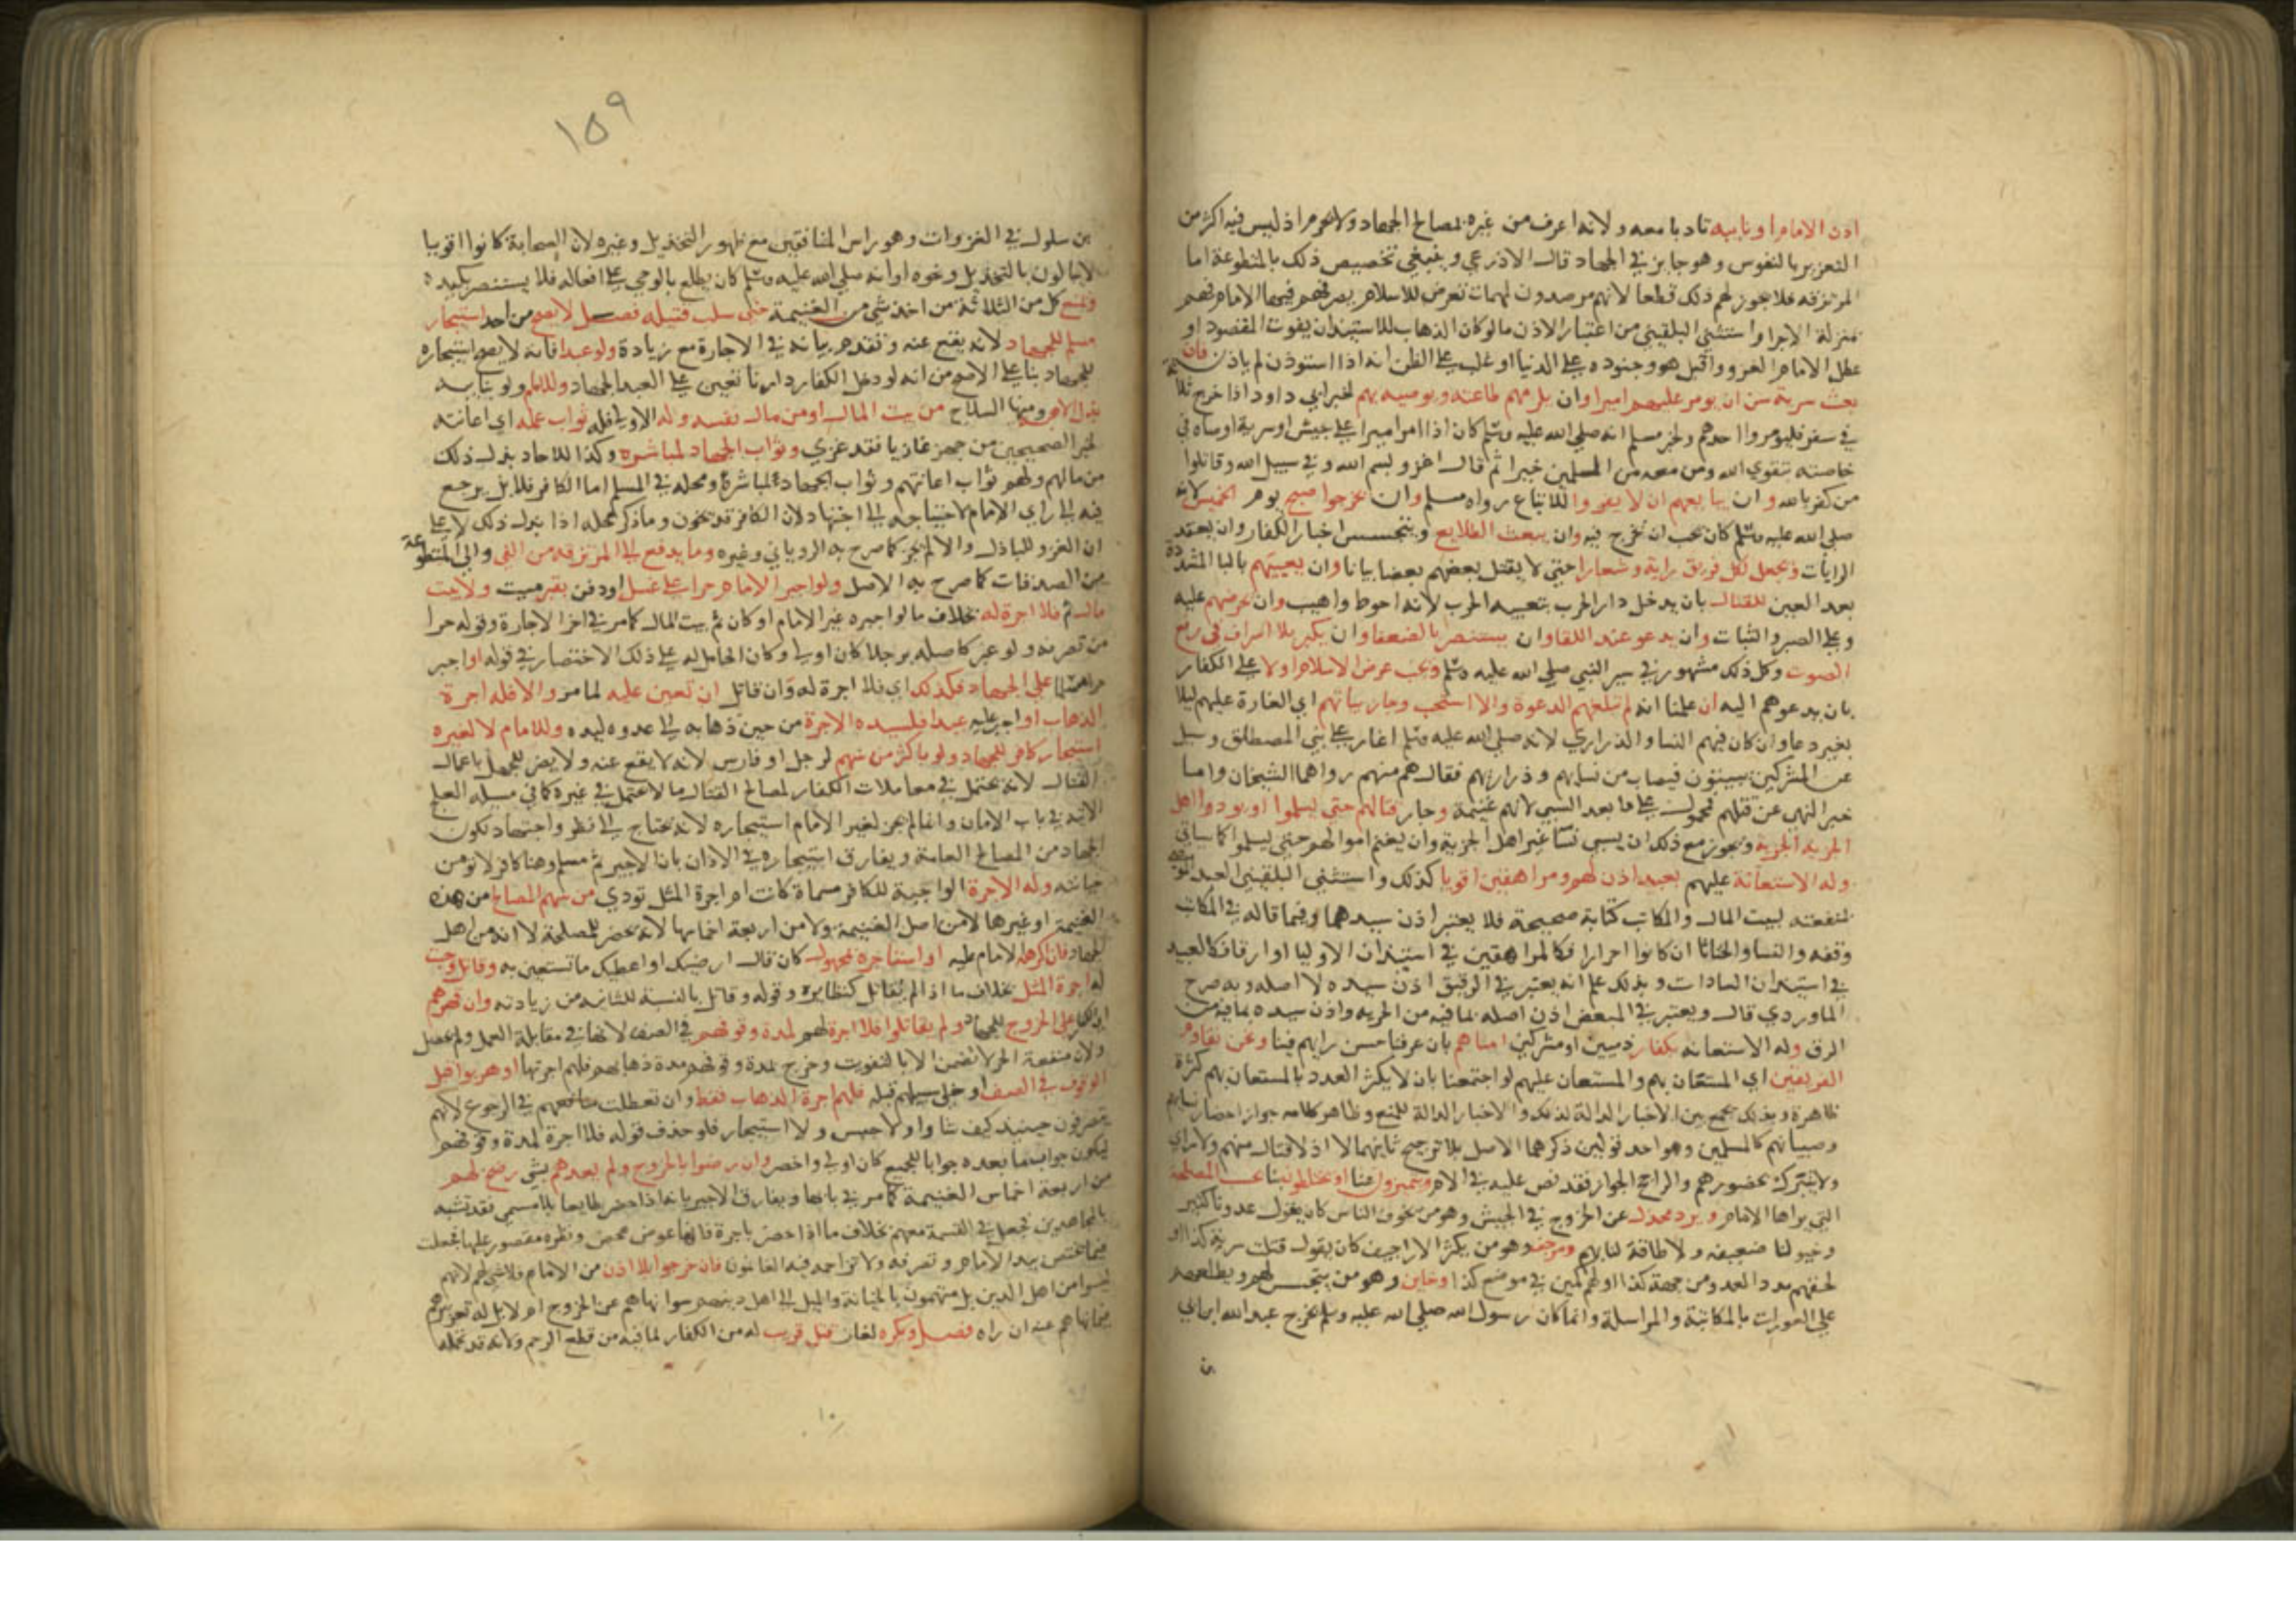 اذن الامام او نايبه تادبا معه ولانه اعرف من غيره بمصالح الجهاد ولا تحرم اذ ليس فيه اكثر من
التعزير بالنفوس وهو جايز في الجهاد قال الاذرعي وينبغي تخصيص ذلك بالمتطوعة اما
المرتزقة فلا يجوز لهم ذلك قطعا لانهم مرصدون لمهمات تعرض للاسلام يصرفهم فيها الامام فهم
بمنزلة الاجرا واستثني البلقيني من اعتبار الاذن ما لو كان الذهاب للاستيذان يفوت المقصود او
عطل الامام الغزو واقبل هو وجنوده على الدنيا او غلب على الظن انه اذا استوذن لم ياذن فان
بعث سرية سن ان يومر عليهم اميرا وان يلزمهم طاعته ويوصيه بهم لخبر ابي داود اذا خرج ثلاثة
في سفر فليومروا احدهم ولخبر مسلم انه صلى الله عليه وسلم كان اذا امر اميرا على جيش او سرية اوصاه في
خاصته بتقوى الله ومن معه من المسلمين خيرا ثم قال اغزو بسم الله وفي سبيل الله وقاتلوا
من كفر بالله وان يبايعهم ان لا يفروا للاتباع رواه مسلم وان يخرجوا صبح يوم الخميس لانه
صلى الله عليه وسلم كان يحب ان يخرج فيه وان يبعث الطلايع ويتجسس اخبار الكفار وان يعقد
الرايات ويجعل لكل فريق راية وشعارا حتى لا يقتل بعضهم بعضا بياتا وان يعبيهم بالبا المشددة
بعد العين للقتال بان يدخل دار الحرب بتعبية الحرب لانه احوط واهيب وان يحرضهم عليه
وعلى الصبر والثبات وان يدعو عند اللقا وان يستنصر بالضعفا وان يكبر بلا اسراف في رفع
الصوت وكل ذلك مشهور في سير النبي صلى الله عليه وسلم ويجب عرض الاسلام اولا على الكفار
بان يدعوهم اليه ان علمنا انه لم تبلغهم الدعوة والا استحب وجاز بياتهم اي الغارة عليهم ليلا
بغير دعا وان كان فيهم النسا والذراري لانه صلى الله عليه وسلم اغار على بني المصطلق وسيل
عن المشركين يبيتون فيصاب من نسايهم وذراريهم فقال هم منهم رواهما الشيخان واما
خبر النهي عن قتلهم فمحمول على ما بعد السبي لانهم غنيمة وجاز قتالهم حتى يسلموا او يودوا اهل
الجزية الجزية ويجوز مع ذلك ان يسبي نسا غير اهل الجزية وان يغنم اموالهم حتى يسلموا كما سياتي
وله الاستعانة عليهم بعبيد اذن لهم ومراهقين اقويا كذلك واستثني البلقيني العبد الموصى
بمنفعته لبيت المال والمكاتب كتابة صحيحة فلا يعتبر اذن سيدهما وفيما قاله في المكاتب
وقفه والنسا والخناثا ان كانوا احرارا فكالمراهقين في استيذان الاوليا او ارقا فكالعبيد
في استيذان السادات وبذلك علم انه يعتبر في الرقيق اذن سيده لا اصله وبه صرح
الماوردي قال ويعتبر في المبعض اذن اصله لما فيه من الحرية واذن سيده بما فيه من
الرق وله الاستعانة بكفار ذميين او مشركين امناهم بان عرفنا حسن رايهم فينا ونحن نقاوم
الفريقين اي المستعان بهم والمستعان عليهم لو اجتمعنا بان لا يكثر العدد بالمستعان بهم كثرة
ظاهرة وبذلك يجمع بين الاخبار الدالة لذلك والاخبار الدالة للمنع وظاهر كلامه جواز احضار نسايهم
وصبيانهم كالمسلمين وهو احد قولين ذكرهما الاصل بلا ترجيح ثانيهما لا اذ لا قتال منهم ولا راي
ولا يتبرك بحضورهم والراجح الجواز فقد نص عليه في الام ويتميزون عنا او يختالطون بنا بحسب المصلحة
التي يراها الامام ويرد مخذل عن الخروج في الجيش وهو من يخوف الناس كان يقول عدونا كثير
وخيولنا ضعيفة ولا طاقة لنا بهم ومرجف وهو من يكثر الاراجيف كان يقول قتلت سرية كذا او
لحقهم مدد العدو من جهة كذا او لهم كمين في موضع كذا وخاين وهو من يتجسس لهم ويطلعهم
على العورات بالمكاتبة والمراسلة وانما كان رسول الله صلى الله عليه وسلم يخرج عبد الله ابن ابي
بن
١٥٩
بن سلول في الغزوات وهو راس المنافقين مع ظهور التخذيل وغيره لان الصحابة كانوا اقويا
لا يبالون بالتخذيل ونحوه او انه صلى الله عليه وسلم كان يطلع بالوحي على افعاله فلا يستنصر بكيده
ويمنع كل من الثلاثة من اخذ شي من الغنيمة حتى سلب قتيله فصل لا يصح من احد استيجار
مسلم للجهاد لانه يقع عنه وتقدم بيانه في الاجارة مع زيادة ولو عبدا فانه لا يصح استيجاره
للجهاد بنا على الاصح من انه لو دخل الكفار دارنا تعين على العبد الجهاد وللامام ولو بنايبه
بذل الاهبة ومنها السلاح من بيت المال او من مال نفسه وله الاولى فله ثواب عمله اي اعانته
لخبر الصحيحين من جهز غازيا فقد غزى وثواب الجهاد لمباشره وكذا للاحاد بذل ذلك
من مالهم ولهم ثواب اعانتهم وثواب الجهاد للمباشرة ومحله في المسلم اما الكافر فلا بل يرجع
فيه الى راي الامام لاحتياجه الى اجتهاد لان الكافر قد يخون وما ذكر محله اذا بذل ذلك لا على
ان الغزو للباذل والا لم يجز كما صرح به الروياني وغيره وما يدفع الى المرتزقة من الفي والى المتطوعة
من الصدقات كما صرح به الاصل ولو اجبر الامام حرا على غسل او دفن بقبر ميت ولا بيت
مال ثم فلا اجرة له بخلاف ما لو اجبره غير الامام او كان ثم بيت المال كما مر في اخر الاجارة وقوله حرا
من تصرفه ولو عبر كاصله برجل كان اولى وكان الحامل له على ذلك الاختصار في قوله او اجبر
حرا مسلما على الجهاد فكذلك اي فلا اجرة له وان قاتل ان تعين عليه لما مر والا فله اجرة
الذهاب او اجبر عليه عبدا فلسيده الاجرة من حين ذهابه الى عدوه ليده وللامام لا لغيره
استيجار كافر للجهاد ولو باكثر من سهم لرجل او فارس لانه لا يقع عنه ولا يضر للجهل باعمال
القتال لانه يحتمل في معاملات الكفار لمصالح القتال ما لا يحتمل في غيره كما في مسيلة العلج
الاتية في باب الامان وانما لم يجز لغير الامام استيجاره لانه يحتاج الى نظر واجتهاد لكون
الجهاد من المصالح العامة ويفارق استيجاره في الاذان بان الاجير ثم مسلم وهنا كافر لا تومن
خيانته وله الاجرة الواجبة للكافر مسماة كانت او اجرة المثل تودي من سهم المصالح من هذه
الغنيمة او غيرها لا من اصل الغنيمة ولا من اربعة اخماسها لانه يحضر للمصلحة لا انه من اهل
الجهاد فان اكرهه الامام عليه او استاجره بمجهول كان قال ارضيك او اعطيك ما تستعين به وقاتل وجبت
له اجرة المثل بخلاف ما اذا لم يقاتل كنظايره وقوله وقاتل بالنسبة للثانية من زيادته وان قهرهم
اي الكفار على الخروج للجهاد ولم يقاتلوا فلا اجرة لهم لمدة وقوفهم في الصف لانها في مقابلة العمل ولم يحصل
ولان منفعة الحر لا تضمن الا بالتفويت وخرج بمدة وقوفهم مدة ذهابهم فلهم اجرتها او هربوا قبل
الوقوف في الصف او خلى سبيلهم قبله فلهم اجرة الذهاب فقط وان تعطلت منافعهم في الرجوع لانهم
يتصرفون حينيذ كيف شاوا ولا حبس ولا استيجار فلو حذف قوله فلا اجرة لمدة وقوفهم
ليكون جواب ما بعده جوابا للجميع كان اولى واخصر وان رضوا بالخروج ولم يعدهم بشي رضخ لهم
من اربعة اخماس الغنيمة كما مر في بابها ويفارق الاجير بانه اذا حضر طايعا بلا مسمى فقد تشبه
بالمجاهدين فجعل في القسمة معهم بخلاف ما اذا حضر باجرة فانها عوض محض ونظره مقصور عليها فجعلت
فيما يختص بيد الامام وتصرفه ولا تزاحمه فيه الغانمون فان خرجوا بلا اذن من الامام فلا شي لهم لانهم
ليسوا من اهل الدين بل متهمون بالخيانة والميل الى اهل دينهم سوا نهاهم عن الخروج ام لا بل له تعزيرهم
فيما نهاهم عنه ان راه فصل ويكره لغاز قتل قريب له من الكفار لما فيه من قطع الرحم ولانه قد يحمله